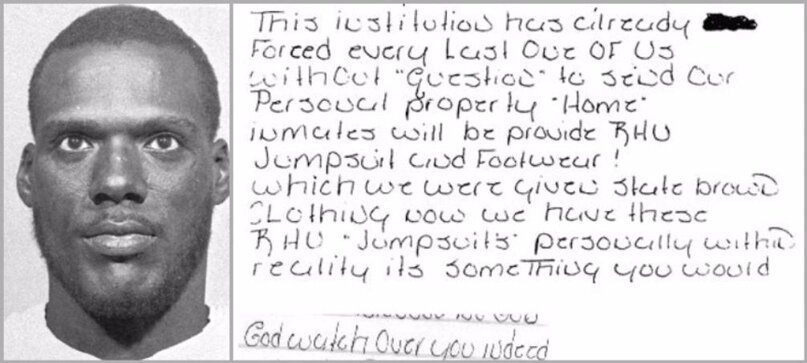 This institution has already
Forced every Last One OF Us
without "Question" to send Our
Personal property "Home"
inmates will be provide RHU
Jumpsuit and Footwear!
which we were given state brown
CLothing now we have these
RHU "Jumpsuits" personally within
reality its something you would
God watch Over you indeed